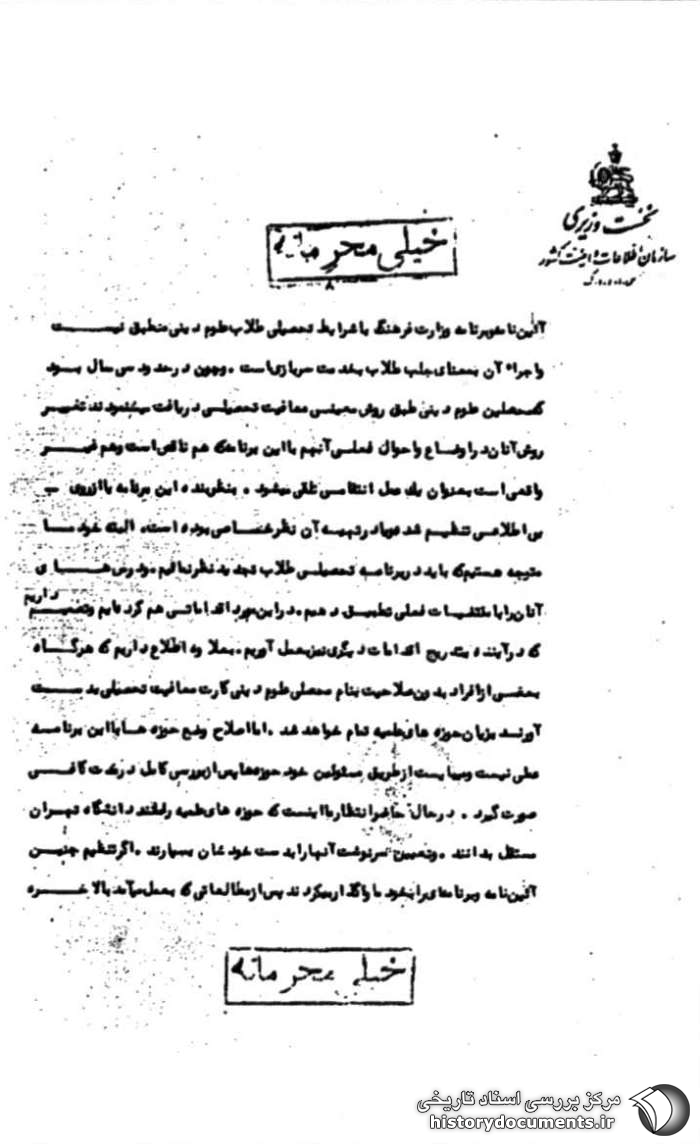 نخست وزیری
سازمان اطلاعات و امنیت کشور
س.ا.و.ا.ک
خیلی محرمانه
آئین‌نامه و برنامه وزارت فرهنگ با شرایط تحصیلی طلاب علوم دینی منطبق نیست
و اجراء آن بمعنای جلب طلاب بخدمت سربازی است . و چون در حدود سی سال بود
که محصلین علوم دینی طبق روش معینی معافیت تحصیلی دریافت مینمودند تغییر
روش آنان در اوضاع و احوال فعلی آنهم با این برنامه‌که هم ناقص است و هم غیر
واقعی است بعنوان یک عمل انتقامی تلقی میشود . بنظر بنده این برنامه یا از روی
بی اطلاعی تنظیم شده و یا در تهیه آن نظر خصاصی بوده است. البته خود ما
متوجه هستیم که باید در برنامه تحصیلی طلاب تجدید نظر نمائیم . و درس های
آنان را با مقتضیات فعلی تطبیق دهیم . در این مورد اقداماتی هم کرده‌ایم و تصمیم داریم
که در آینده بتدریج اقدامات دیگری نیز بعمل آوریم . بعلاوه اطلاع داریم که هرگاه
بعضی از افراد بدون صلاحیت بنام محصل علوم دینی کارت معافیت تحصیلی بدست
آورند بزیان حوزه های علمیه تمام خواهد شد . اما اصلاح وضع حوزه ها با این برنامه
عملی نیست و میبایست از طریق مسئولین خود حوزه‌ها پس از بررسی کامل در مدت کافی
صورت گیرد . در حال حاضر انتظار ما اینست که حوزه های علمیه را مانند دانشگاه تهران
مستقل بدانند . و تعیین سرنوشت آنها را بدست خودشان بسپارند . اگر تنظیم چنین
آئین‌نامه و برنامه‌ای را بخود ما واگذار میکردند پس از مطالعاتی که بعمل میآمد بالاخره
خیلی محرمانه
مرکز بررسی اسناد تاریخی
historydocuments.ir